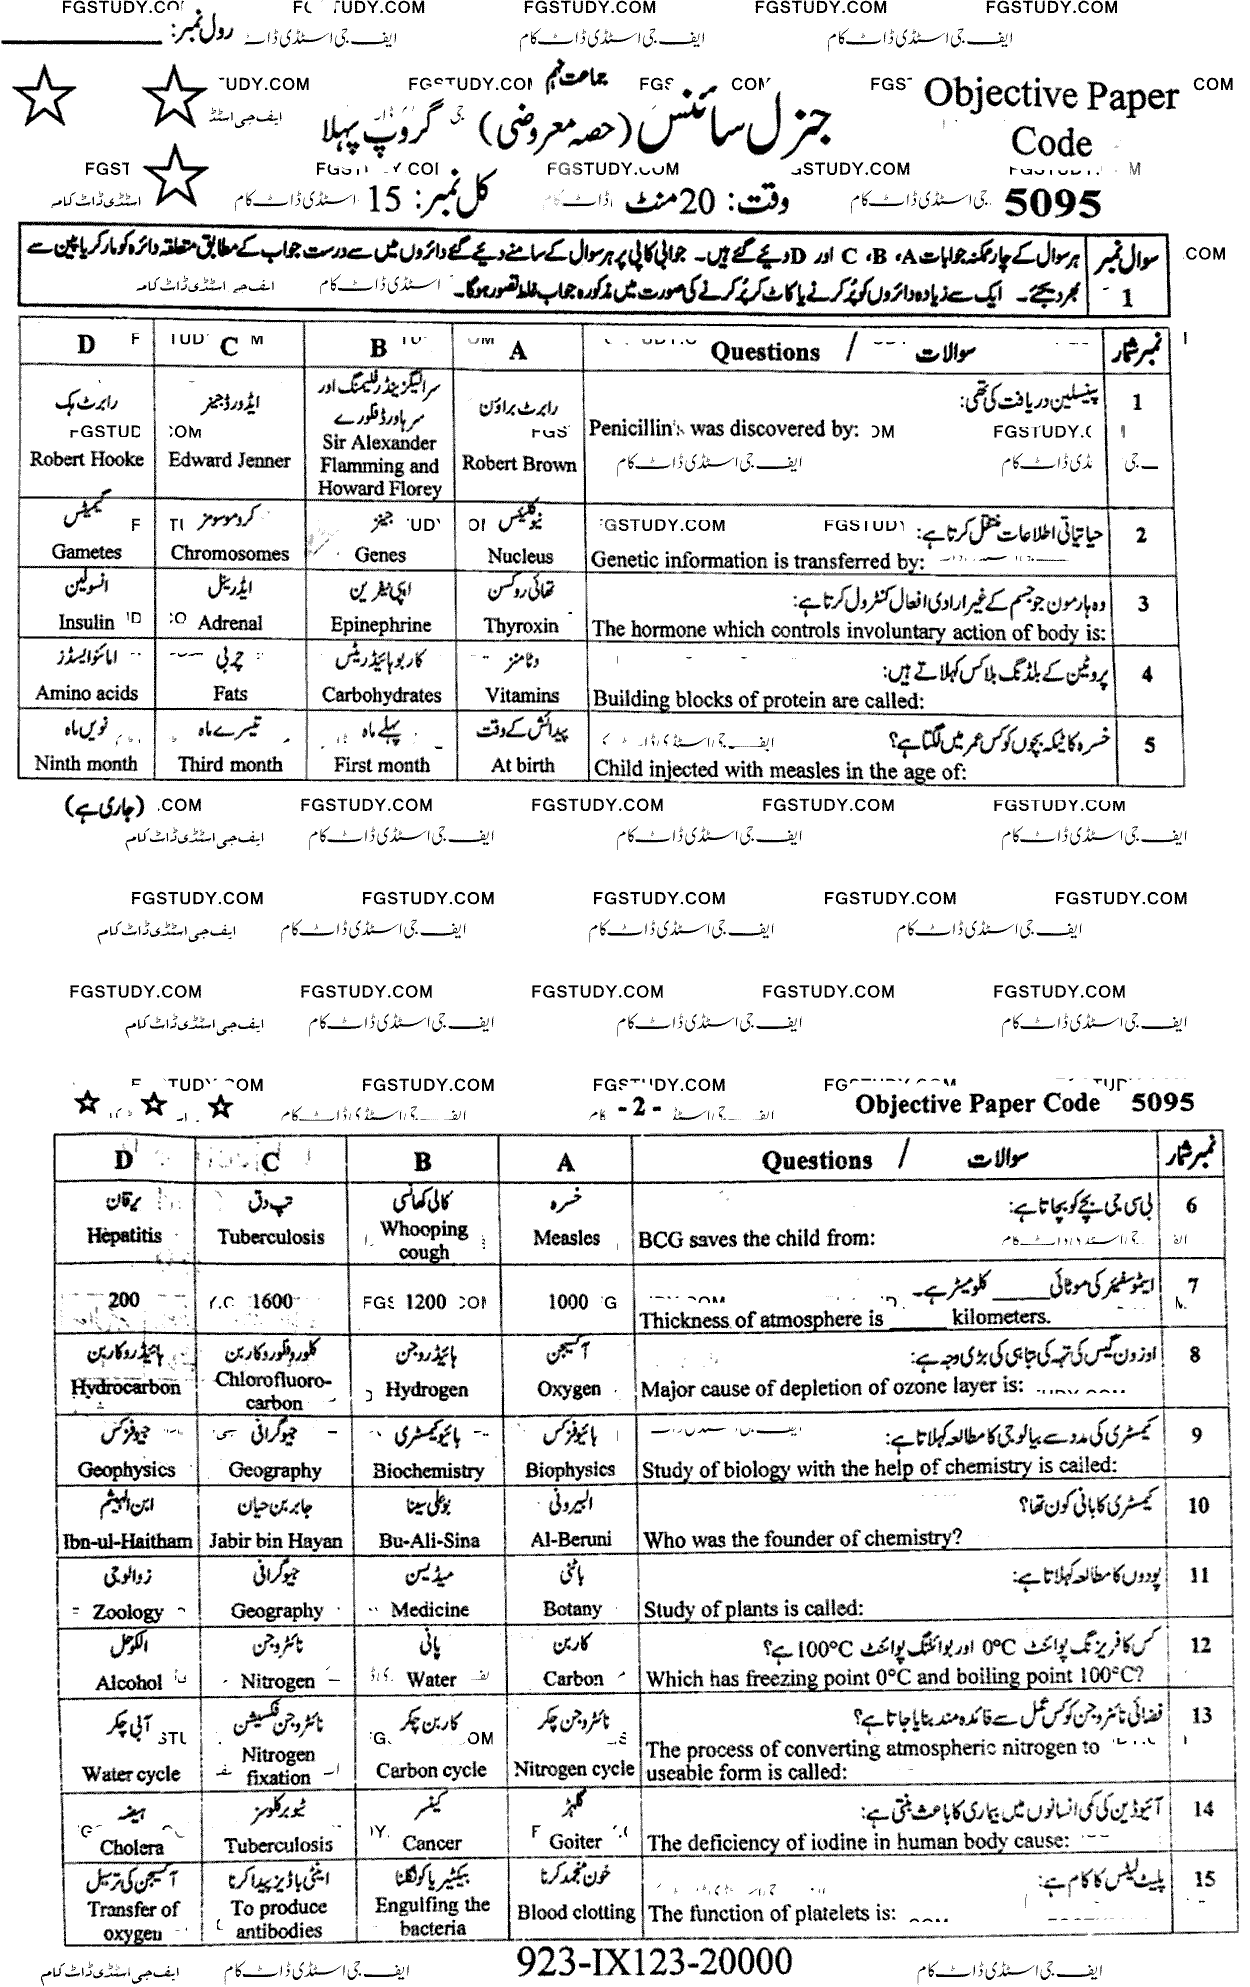 رول نمبر:
جماعت نہم
Objective Paper Code
جنرل سائنس (حصہ معروضی) گروپ پہلا
5095
وقت: 20 منٹ
کل نمبر: 15
سوال نمبر 1
ہر سوال کے چار ممکنہ جوابات A، B، C اور D دیئے گئے ہیں۔ جوابی کاپی پر ہر سوال کے سامنے دیئے گئے دائروں میں سے درست جواب کے مطابق متعلقہ دائرہ کو مارکر یا پین سے
بھر دیجئے۔ ایک سے زیادہ دائروں کو پُر کرنے یا کاٹ کر پُر کرنے کی صورت میں مذکورہ جواب غلط تصور ہوگا۔
D C B A Questions / سوالات نمبر شمار
1 پینسلین دریافت کی تھی:
Penicillin's was discovered by:
رابرٹ براؤن
Robert Brown
سر الیگزینڈر فلیمنگ اور سر ہاورڈ فلورے
Sir Alexander Flamming and Howard Florey
ایڈورڈ جینر
Edward Jenner
رابرٹ ہک
Robert Hooke
2 حیاتیاتی اطلاعات منتقل کرتا ہے:
Genetic information is transferred by:
نیوکلیئس
Nucleus
جینز
Genes
کروموسومز
Chromosomes
گیمیٹس
Gametes
3 وہ ہارمون جو جسم کے غیر ارادی افعال کنٹرول کرتا ہے:
The hormone which controls involuntary action of body is:
تھائی روکسن
Thyroxin
اپی نیفرین
Epinephrine
ایڈرینل
Adrenal
انسولین
Insulin
4 پروٹین کے بلڈنگ بلاکس کہلاتے ہیں:
Building blocks of protein are called:
وٹامنز
Vitamins
کاربوہائیڈریٹس
Carbohydrates
چربی
Fats
امائنو ایسڈز
Amino acids
5 خسرہ کا ٹیکہ بچوں کو کس عمر میں لگتا ہے؟
Child injected with measles in the age of:
پیدائش کے وقت
At birth
پہلے ماہ
First month
تیسرے ماہ
Third month
نویں ماہ
Ninth month
(جاری ہے)
FGSTUDY.COM FGSTUDY.COM FGSTUDY.COM FGSTUDY.COM
ایف جی اسٹڈی ڈاٹ کام ایف جی اسٹڈی ڈاٹ کام ایف جی اسٹڈی ڈاٹ کام ایف جی اسٹڈی ڈاٹ کام
FGSTUDY.COM FGSTUDY.COM FGSTUDY.COM FGSTUDY.COM FGSTUDY.COM
ایف جی اسٹڈی ڈاٹ کام ایف جی اسٹڈی ڈاٹ کام ایف جی اسٹڈی ڈاٹ کام ایف جی اسٹڈی ڈاٹ کام
FGSTUDY.COM FGSTUDY.COM FGSTUDY.COM FGSTUDY.COM FGSTUDY.COM
ایف جی اسٹڈی ڈاٹ کام ایف جی اسٹڈی ڈاٹ کام ایف جی اسٹڈی ڈاٹ کام ایف جی اسٹڈی ڈاٹ کام
-2- Objective Paper Code 5095
D C B A Questions / سوالات نمبر شمار
6 بی سی جی بچے کو بچاتا ہے:
BCG saves the child from:
خسرہ
Measles
کالی کھانسی
Whooping cough
تپ دق
Tuberculosis
یرقان
Hepatitis
7 ایٹموسفیئر کی موٹائی ______ کلومیٹر ہے۔
Thickness of atmosphere is ______ kilometers.
1000
1200
1600
200
8 اوزون گیس کی تہہ کی تباہی کی بڑی وجہ ہے:
Major cause of depletion of ozone layer is:
آکسیجن
Oxygen
ہائیڈروجن
Hydrogen
کلوروفلوروکاربن
Chlorofluoro-carbon
ہائیڈروکاربن
Hydrocarbon
9 کیمسٹری کی مدد سے بیالوجی کا مطالعہ کہلاتا ہے:
Study of biology with the help of chemistry is called:
بائیوفزکس
Biophysics
بائیوکیمسٹری
Biochemistry
جیوگرافی
Geography
جیوفزکس
Geophysics
10 کیمسٹری کا بانی کون تھا؟
Who was the founder of chemistry?
البیرونی
Al-Beruni
بوعلی سینا
Bu-Ali-Sina
جابر بن حیان
Jabir bin Hayan
ابن الہیثم
Ibn-ul-Haitham
11 پودوں کا مطالعہ کہلاتا ہے:
Study of plants is called:
باٹنی
Botany
میڈیسن
Medicine
جیوگرافی
Geography
زوالوجی
Zoology
12 کس کا فریزنگ پوائنٹ 0°C اور بوائلنگ پوائنٹ 100°C ہے؟
Which has freezing point 0°C and boiling point 100°C?
کاربن
Carbon
پانی
Water
نائٹروجن
Nitrogen
الکوحل
Alcohol
13 فضائی نائٹروجن کو کس عمل سے فائدہ مند بنایا جاتا ہے؟
The process of converting atmospheric nitrogen to
useable form is called:
نائٹروجن چکر
Nitrogen cycle
کاربن چکر
Carbon cycle
نائٹروجن فکسیشن
Nitrogen fixation
آبی چکر
Water cycle
14 آئیوڈین کی کمی انسانوں میں بیماری کا باعث بنتی ہے:
The deficiency of iodine in human body cause:
گلہڑ
Goiter
کینسر
Cancer
ٹیوبرکلوسز
Tuberculosis
ہیضہ
Cholera
15 پلیٹ لیٹس کا کام ہے:
The function of platelets is:
خون منجمد کرنا
Blood clotting
بیکٹیریا کو نگلنا
Engulfing the bacteria
اینٹی باڈیز پیدا کرنا
To produce antibodies
آکسیجن کی ترسیل
Transfer of oxygen
923-IX123-20000